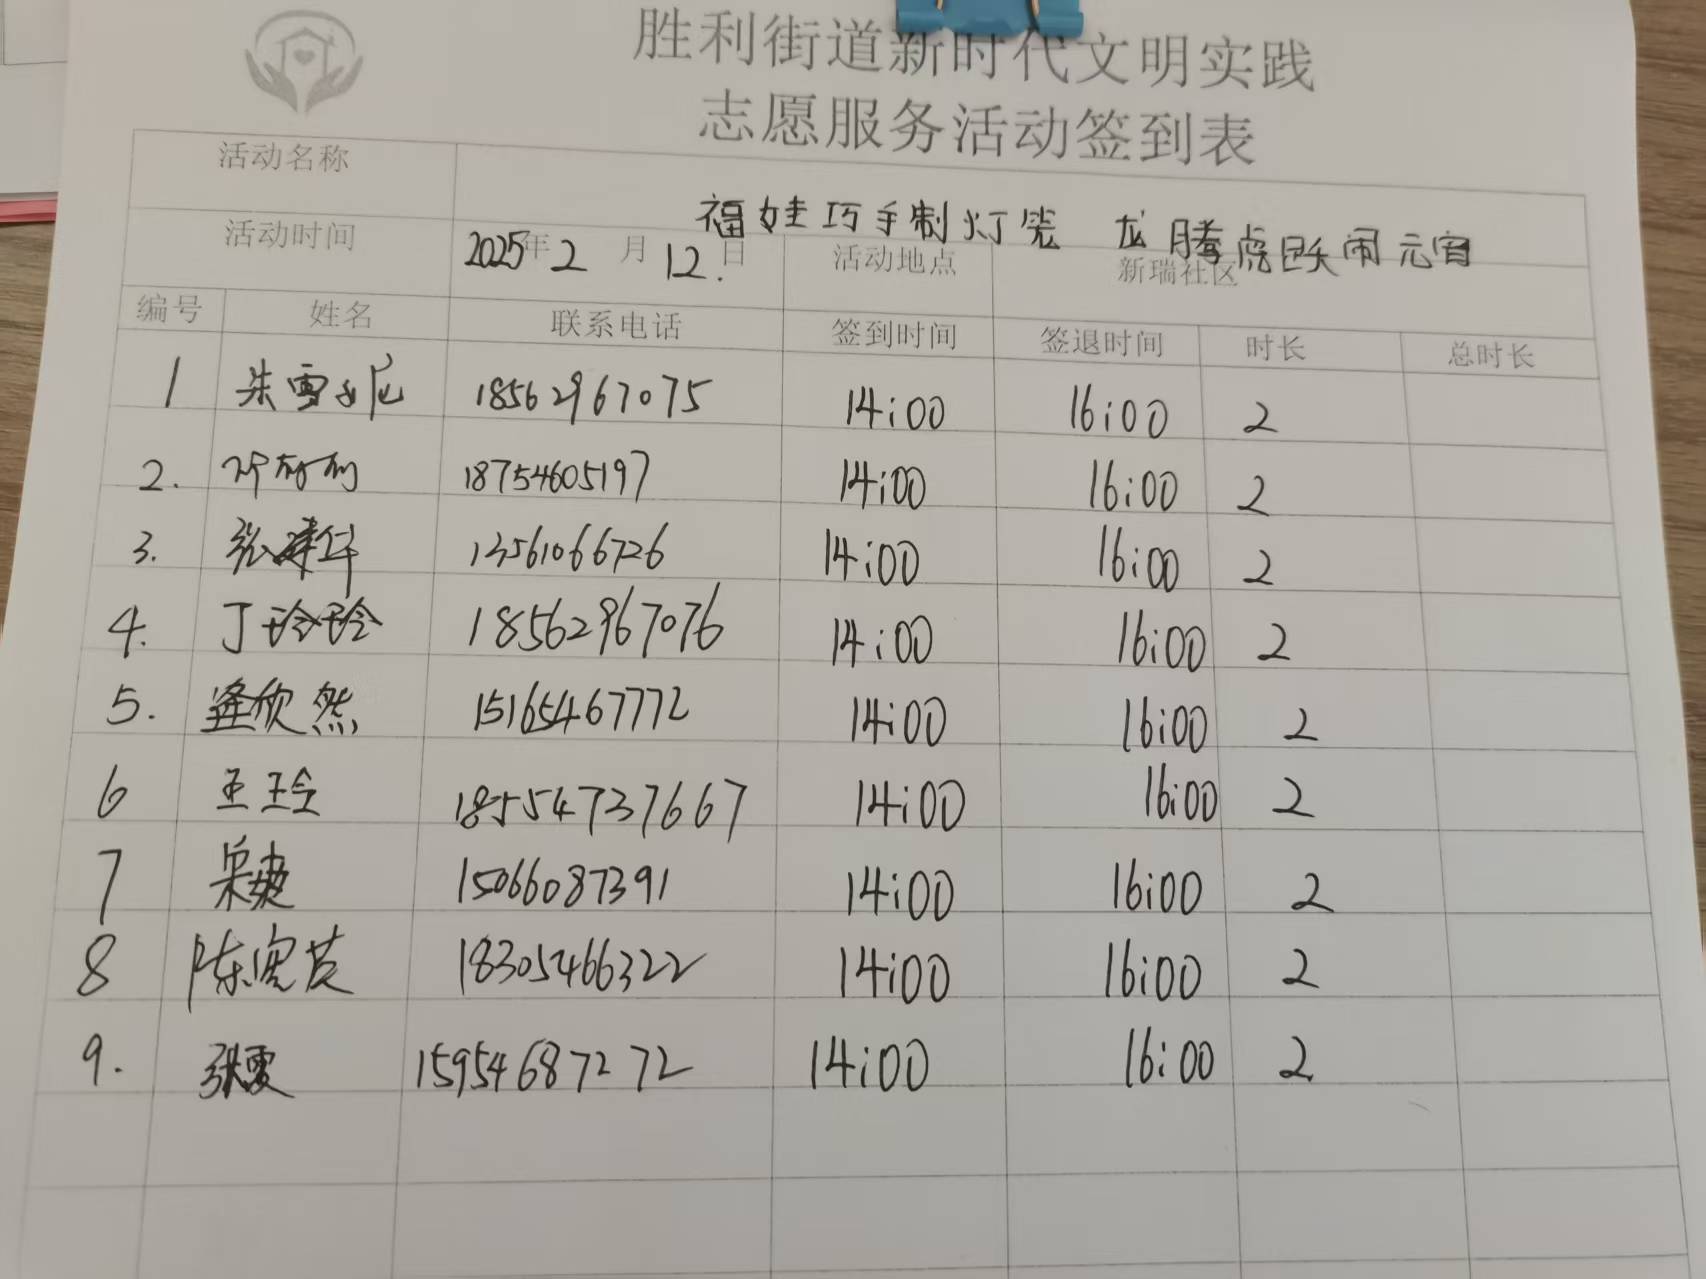 胜利街道新时代文明实践
志愿服务活动签到表
活动名称 福娃巧手制灯笼 龙腾虎跃闹元宵
活动时间 2025年2月12日 活动地点 新瑞社区
编号 姓名 联系电话 签到时间 签退时间 时长 总时长
1 朱雪妮 18562967075 14:00 16:00 2
2. 18754605197 14:00 16:00 2
3. 张建华 13561066726 14:00 16:00 2
4. 丁玲玲 18562967076 14:00 16:00 2
5. 逄欣然 15165467772 14:00 16:00 2
6 王玲 18554737667 14:00 16:00 2
7 15066087391 14:00 16:00 2
8 陈 18305466322 14:00 16:00 2
9. 张雯 15954687272 14:00 16:00 2